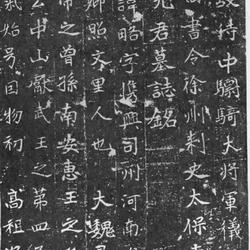 故侍中驃騎大將軍儀
書令徐州刺史太保
元君墓誌銘
諱略字儁興司州河南
鄉照文里人也 大魏
帝之曾孫南安惠王之
公中山獻武王之第四
氣始号 物初 高祖